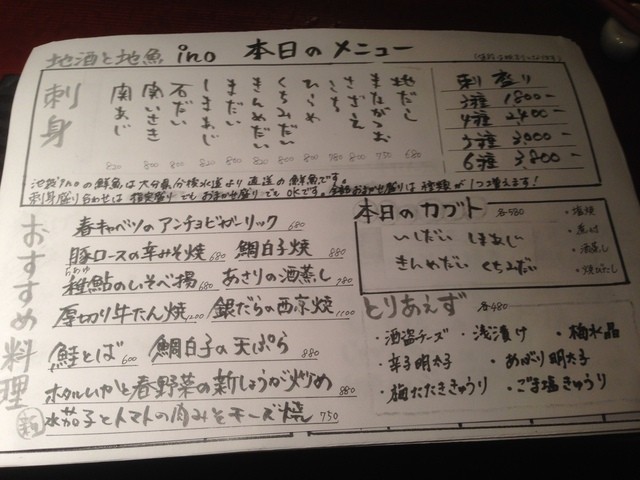 地酒と地魚 ino 本日のメニュー
刺身
地だし 680
まながつお 750
さざえ 800
こち 780
ひらめ 800
くちみだい 800
きんめだい 800
まだい 820
しまあじ 800
石だい 800
関いさき 800
関あじ 820
刺盛り
3種 1800-
4種 2,400-
5種 3,000-
6種 3,800-
池袋inoの鮮魚は大分県分後水道より直送の鮮魚です。
刺身盛り合わせは指定盛りでもおまかせ盛りでもOKです。おまかせ盛りは種類が1つ増えます!
おすすめ料理
春キャベツのアンチョビガーリック 680
豚ロースの辛みそ焼 680 鯛白子焼 880
稚鮎のいそべ揚 680 あさりの酒蒸し 780
厚切り牛たん焼 1200 銀だらの西京焼 1100
鮭とば 600 鯛白子の天ぷら 880
ホタルいかと春野菜の新しょうが炒め 880
水茄子とトマトの肉みそチーズ焼 750
本日のカブト 各580
いしだい しまあじ
きんめだい くちみだい
・塩焼
・煮付
・酒蒸し
とりあえず 各480
・酒盗チーズ ・浅漬け ・梅水晶
・辛子明太子 ・あぶり明太子
・梅たたききゅうり ・ごま塩きゅうり